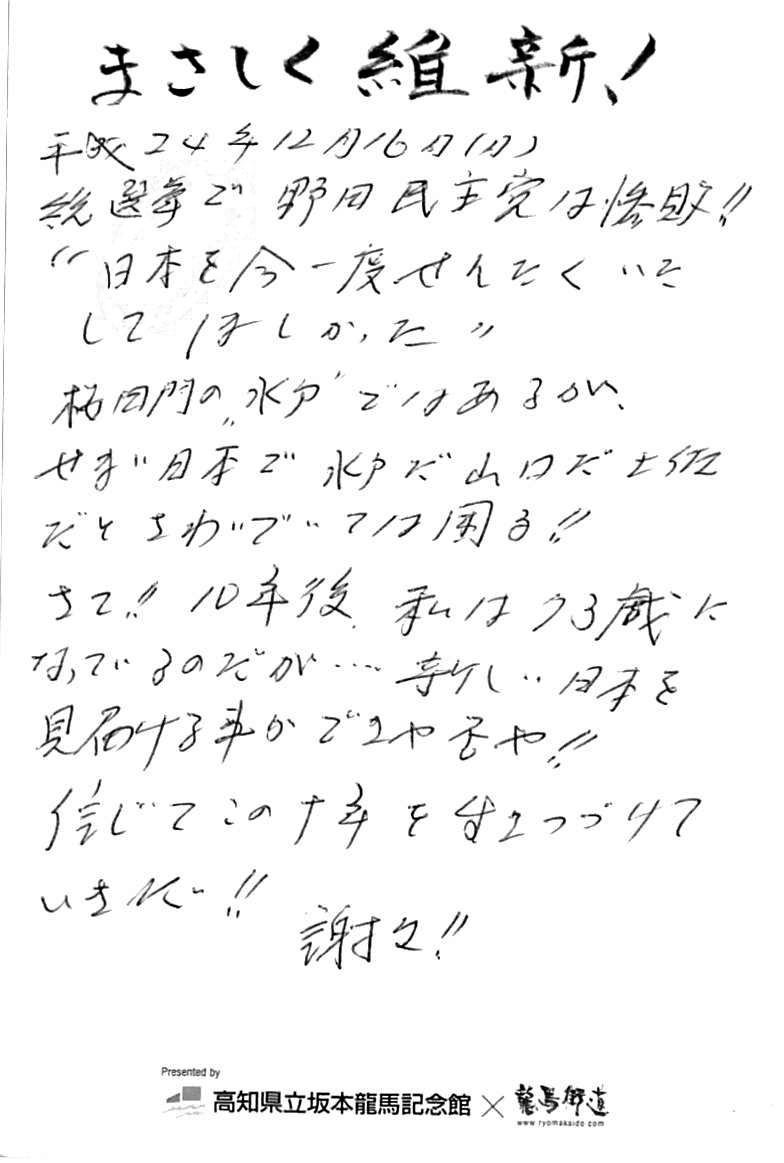 まさしく維新!
平成24年12月16日(日)
総選挙で 野田民主党は惨敗!!
“日本を今一度せんたくいた
してほしかった”
桜田門の“水戸”ではあるが、
せまい日本で 水戸だ山口だ土佐
だとさわいでいては困る!!
さて!! 10年後、私は73歳に
なっているのだが…. 新しい日本を
見届ける事ができるや否や!!
信じてこの十年を生きつづけて
いきたい!!
謝々!!
Presented by
高知県立坂本龍馬記念館×龍馬街道
www.ryomakaido.com